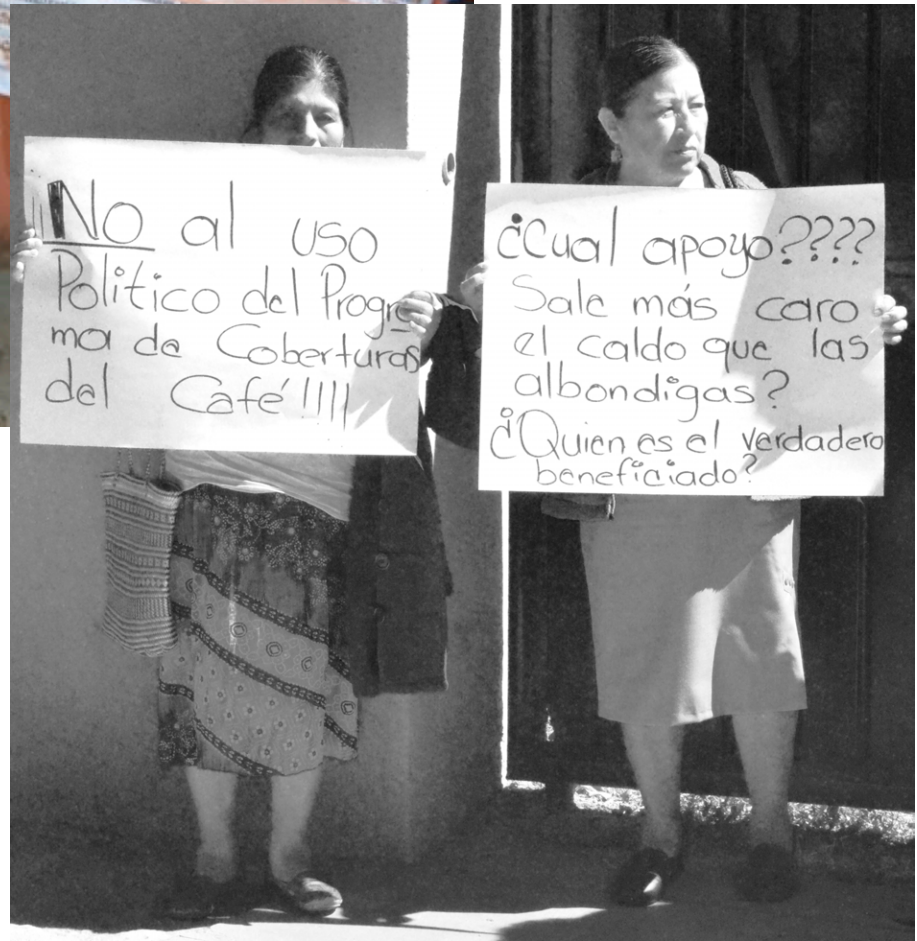 ¡¡No al uso
Politico del Progra
ma de Coberturas
del Café!!!!
¿Cual apoyo????
Sale más caro
el caldo que las
albondigas?
¿Quien es el verdadero
beneficiado?